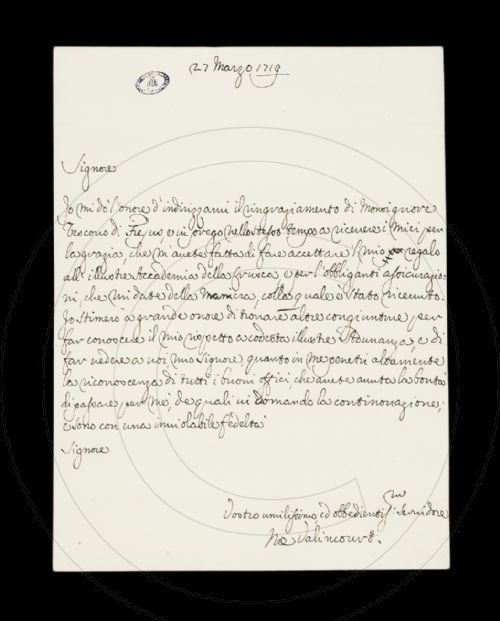 27 Marzo 1719
Signore
Io mi dò l'onore d'indirizzarvi il ringraziamento di Monsignore
Vescovo di Frejus, e vi prego nello stesso tempo a ricevere i miei per
la grazia, che m'avete fatta di fare accettare il mio regalo
all'illustre Accademia della Crusca, e per l'obbliganti assicurazio-
ni, che mi date della maniera, colla quale è stato ricevuto.
Io stimerò a grande onore di trovare altre congiunture, per
far conoscere il mio rispetto a codesta illustre Adunanza, e di
far vedere a voi mio Signore quanto in me penetri altamente
la riconoscenza di tutti i buoni offici, che avete avuta la bontà
di passare per me, de quali vi domando la continovazione;
e sono con una inviolabile fedeltà
Signore
Vostro umilissimo, ed obbedientiss.mo Servidore
De Valincourt.